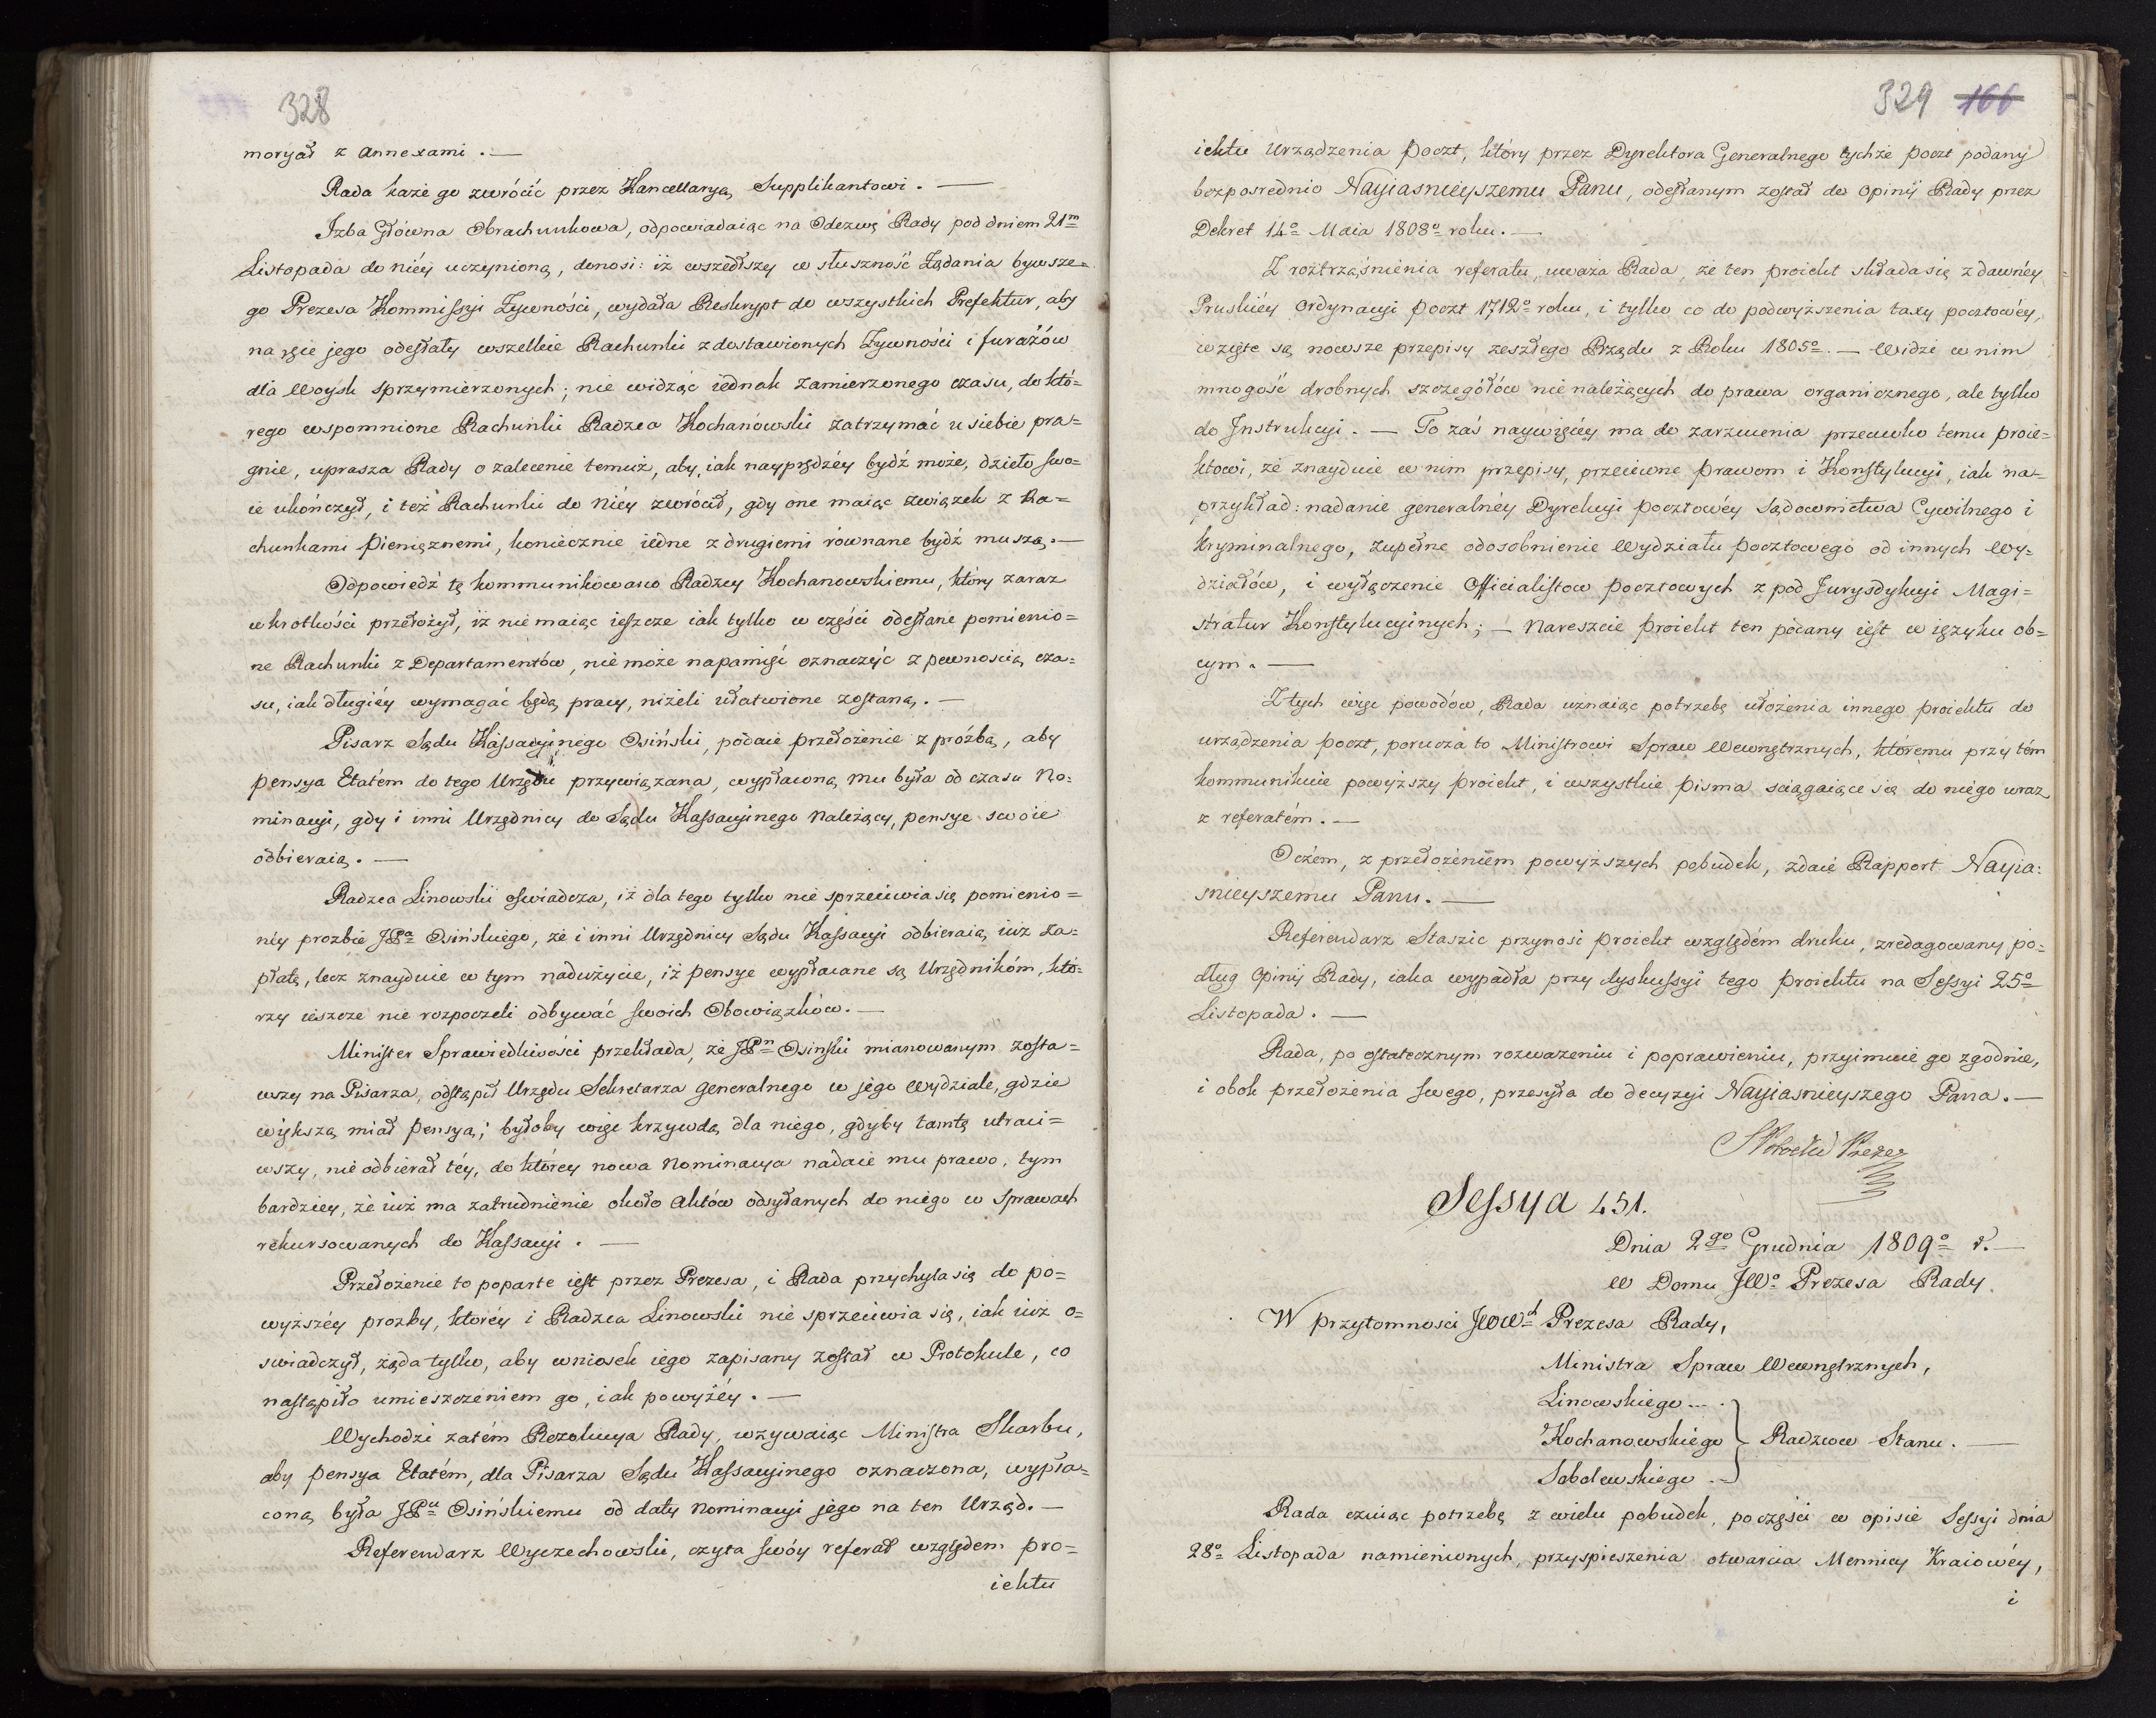 328
moryał z Annexami. —
Rada każe go zwrócić przez Kancellaryą Supplikantowi. —
Izba Główna Obrachunkowa, odpowiadaiąc na Odezwę Rady pod dniem 21m
Listopada do niéy uczynioną, donosi: iż wszedłszy w słuszność Żądania bywsze=
go Prezesa Kommissyi Żywności, wydała Reskrypt do wszystkich Prefektur, aby
na ręce jego odesłały wszelkie Rachunki z dostawionych Żywności i furażów
dla Woysk sprzymierzonych; nie widząc iednak zamierzonego czasu, do któ=
rego wspomnione Rachunki Radzca Kochanowski zatrzymać u siebie pra=
gnie, uprasza Rady o zalecenie temuż, aby, iak nayprędzéy bydź może, dzieło swo=
ie ukończył, i też Rachunki do Niéy zwrócił, gdy one maiąc związek z Ra=
chunkami Pieniężnemi, koniecznie iedne z drugiemi równane bydź muszą. —
Odpowiedź tę kommunikowano Radzcy Kochanowskiemu, który zaraz
w krotkości przełożył, iż nie maiąc ieszcze iak tylko w części odesłane pomienio=
ne Rachunki z Departamentów, nie może napamięć oznaczyć z pewnoscią cza=
su, iak długiéy wymagać będą pracy, niżeli ułatwione zostaną. —
Pisarz Sądu Kassacyinego Osiński, podaie przełożenie z proźbą, aby
pensya Etatém do tego Urzędu przywiązana, wypłaconą mu była od czasu No=
minacyi, gdy i inni Urzędnicy do Sądu Kassacyinego Należący, pensye swoie
odbieraią. —
Radzca Linowski oswiadcza, iż dla tego tylko nie sprzeciwia się pomienio=
néy prozbie JPa Osińskiego, że i inni Urzędnicy Sądu Kassacyi odbieraią iuż Za=
płatę, lecz znayduie w tym nadużycie, iż pensye wypłacane są Urzędnikóm, któ=
rzy ieszcze nie rozpoczeli odbywać swoich Obowiązków. —
Minister Sprawiedliwości przekłada, że JPn Osiński mianowanym zosta=
wszy na Pisarza, odstąpił Urzędu Sekretarza Generalnego w jego Wydziale, gdzie
większą miał pensyą; byłoby więc krzywdą dla niego, gdyby tamtę utraci=
wszy, nie odbierał téy, do któréy nowa Nominacya nadaie mu prawo, tym
bardziey, że iuż ma zatrudnienie około Aktów odsyłanych do niego w Sprawach
rekursowanych do Kassacyi. —
Przełożenie to poparte iest przez Prezesa, i Rada przychyla się do po=
wyższéy prozby, któréy i Radzca Linowski nie sprzeciwia się, iak iuż o=
swiadczył, żąda tylko, aby wniosek iego zapisany został w Protokule, co
nastąpiło umieszczeniem go, iak powyżéy. —
Wychodzi zatém Rezolucya Rady, wzywaiąc Ministra Skarbu,
aby pensya Etatém, dla Pisarza Sądu Kassacyinego oznaczona, wypła=
coną była JPu Osińskiemu od daty Nominacyi jego na ten Urząd. —
Referendarz Wyczechowski, czyta swóy referat względem pro=
iektu
329 166
iektu Urządzenia Poczt, który przez Dyrektora Generalnego tychże Poczt podany
bezpośrednio Nayiasnieyszemu Panu, odesłanym został do Opinij Rady przez
Dekret 14o Maia 1808o roku. —
Z roztrząśnienia referatu, uważa Rada, że ten proiekt składa się z dawnéy
Pruskiéy Ordynacyi Poczt 1712o roku, i tylko co do podwyższenia taxy pocztowéy,
wzięte są nowsze przepisy zeszłego Rządu z Roku 1805o. — Widzi w nim
mnogość drobnych szczegółów nie należących do prawa organicznego, ale tylko
do Instrukcyi. — To zaś naywięcéy ma do zarzucenia przeciwko temu proie=
ktowi, że znayduie w nim przepisy, przeciwne Prawom i Konstytucyi, iak na=
przykład: nadanie generalnéy Dyrekcyi Pocztowéy Sądownictwa Cywilnego i
Kryminalnego, zupełne odosobnienie Wydziału Pocztowego od innych Wy=
działów, i wyłączenie Officialistow Pocztowych z pod Jurysdykcyi Magi=
stratur Konstytucyinych; — Nareszcie Proiekt ten podany iest w ięzyku ob=
cym. —
Z tych więc powodów, Rada uznaiąc potrzebę ułożenia innego proiektu do
urządzenia Poczt, porucza to Ministrowi Spraw Wewnętrznych, któremu przy tém
kommunikuie powyższy Proiekt, i wszystkie Pisma sciągaiące się do niego wraz
z referatém. —
O czém, z przełożeniem powyższych pobudek, zdaie Rapport Nayia=
snieyszemu Panu. —
Referendarz Staszic przynosi Proiekt względém druku, zredagowany po=
dług Opinij Rady, iaka wypadła przy dyskussyi tego Proiektu na Sessyi 25o
Listopada. —
Rada, po ostatecznym rozważeniu i poprawieniu, przyimuie go zgodnie,
i obok przełożenia swego, przesyła do decyzyi Nayiasnieyszego Pana. —
SPotocki Prezes
Sessya 451.
Dnia 2go Grudnia 1809o r. —
W Domu JWo Prezesa Rady.
W przytomnosci JWWch Prezesa Rady,
Ministra Spraw Wewnętrznych,
Linowskiego
Kochanowskiego } Radzcow Stanu. —
Sobolewskiego
Rada czuiąc potrzebę z wielu pobudek, po części w opisie Sessyi dnia
28o Listopada namienionych, przyspieszenia otwarcia Mennicy Kraiowéy,
i